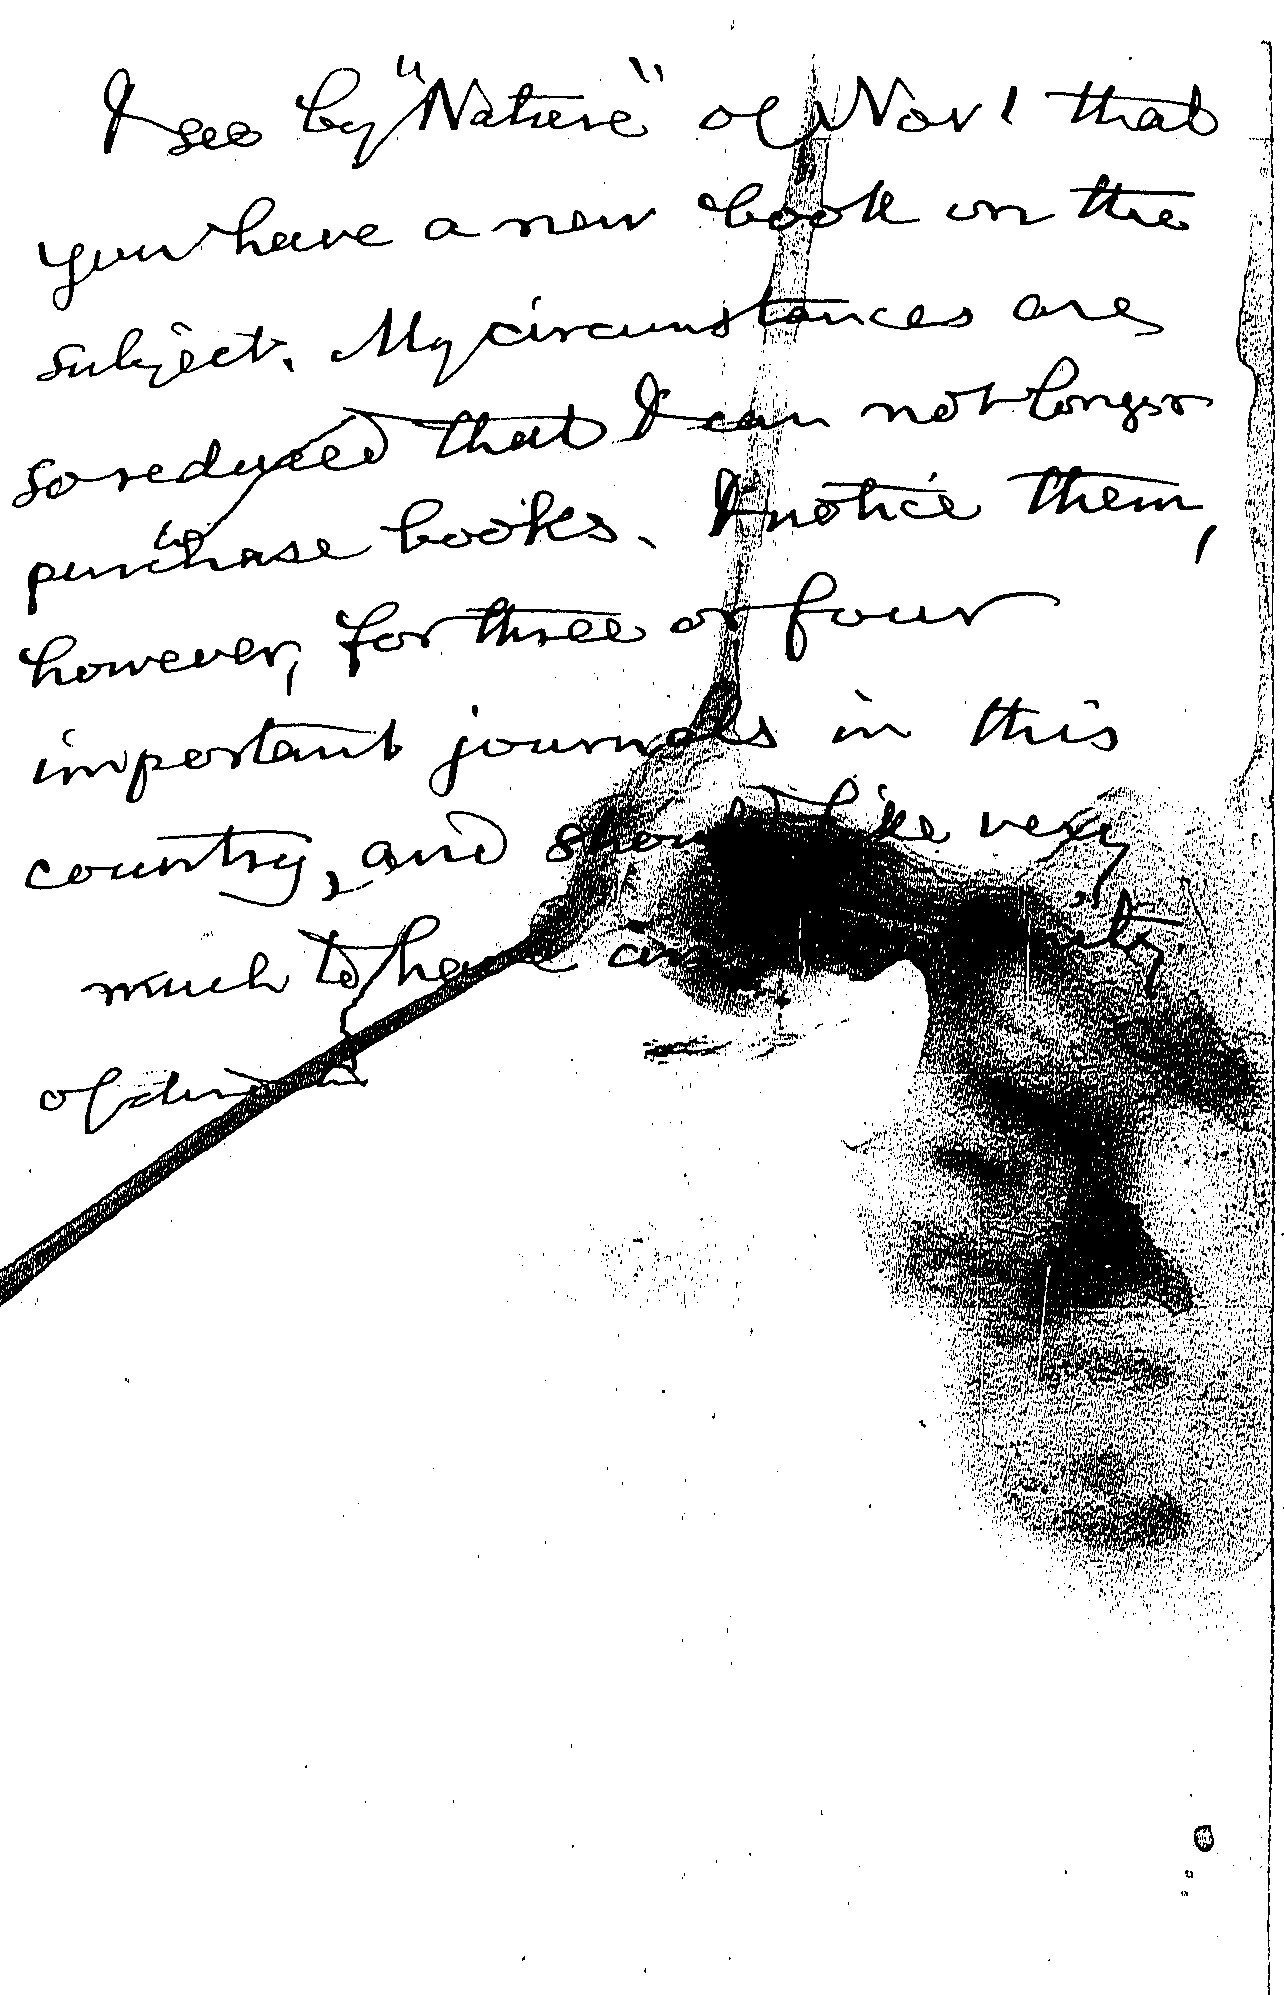 I see by "Nature" of Nov 1 that
you have a new book on the
subject. My circumstances are
so reduced that I can not longer
purchase books. I notice them,
however, for three or four
important journals in this
country, and should like very
much to have an
of